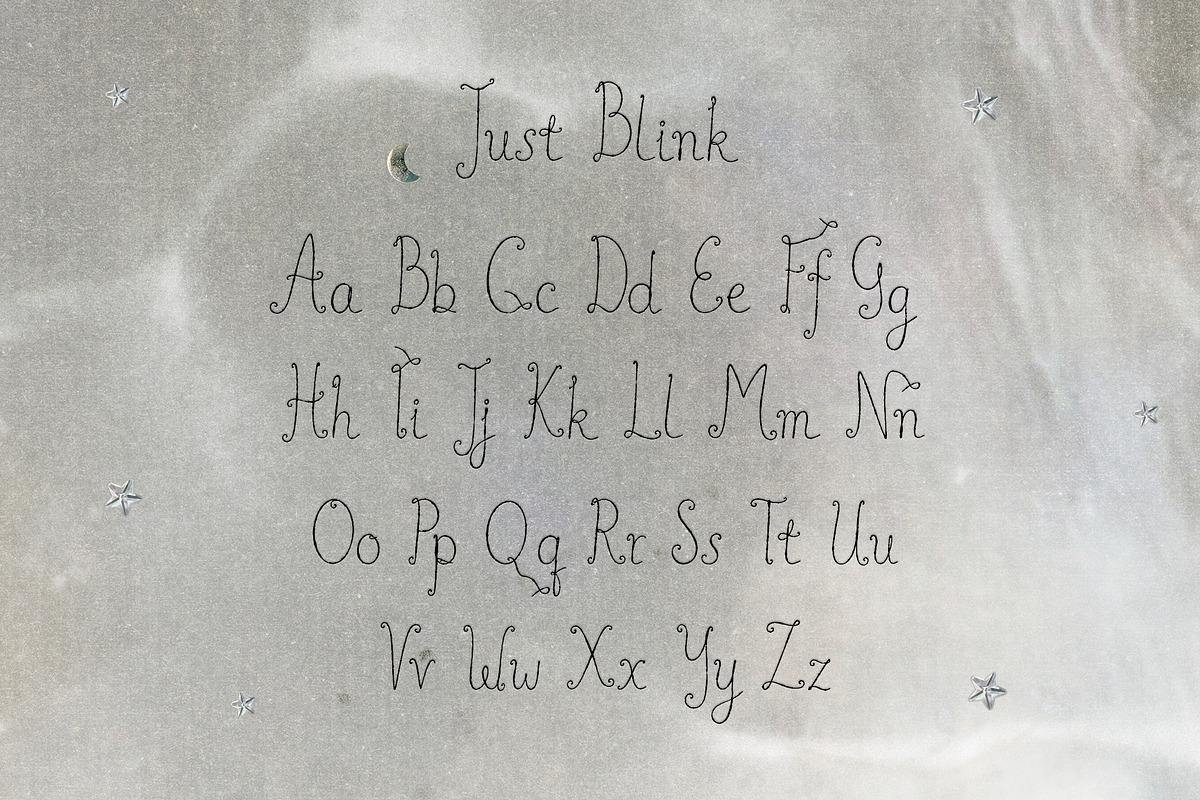 Just Blink
Aa Bb Cc Dd Ee Ff Gg
Hh Ii Jj Kk Ll Mm Nn
Oo Pp Qq Rr Ss Tt Uu
Vv Ww Xx Yy Zz